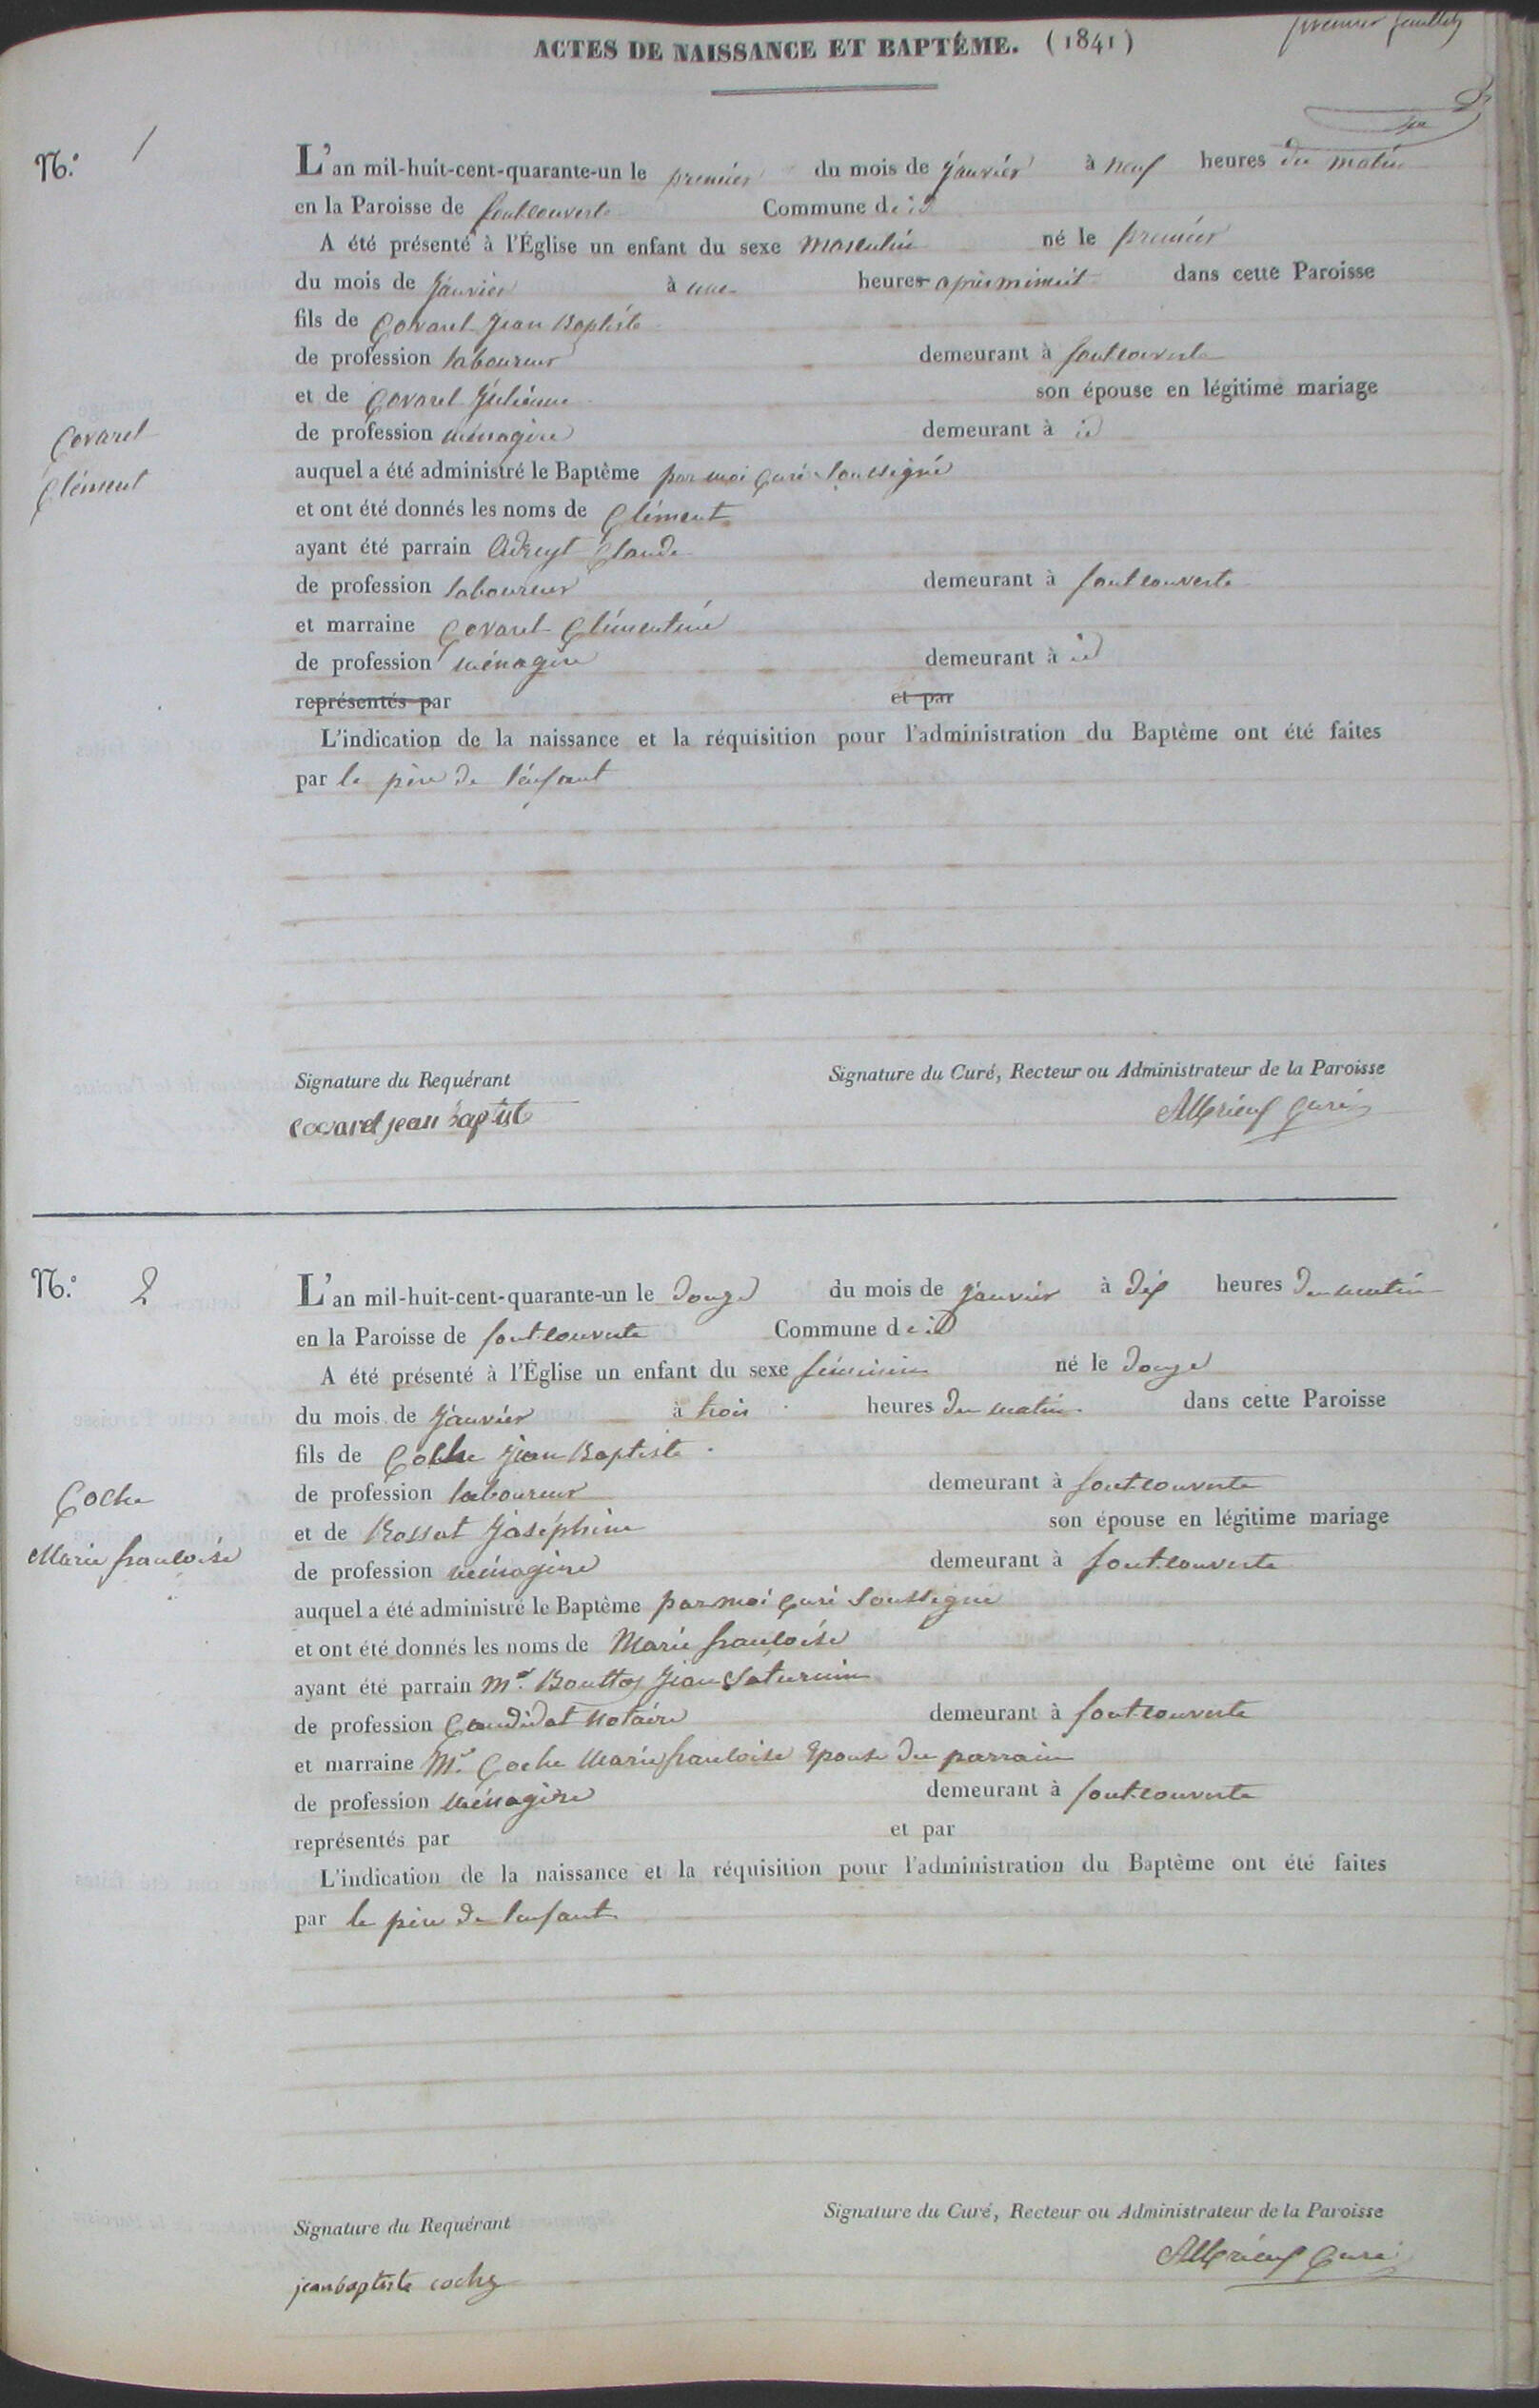 ACTES DE NAISSANCE ET BAPTÊME. (1841)
premier feuillet
N.º 1
L'an mil-huit-cent-quarante-un le premier du mois de janvier à neuf heures du matin
en la Paroisse de fontcouverte Commune de id
A été présenté à l'Église un enfant du sexe masculin né le premier
du mois de janvier à une heures après minuit dans cette Paroisse
fils de Covarel Jean Baptiste
de profession laboureur demeurant à fontcouverte
et de Covarel Julienne son épouse en légitime mariage
Covarel
Clément
de profession ménagère demeurant à id
auquel a été administré le Baptême par moi Curé soussigné
et ont été donnés les noms de Clément
ayant été parrain Claude
de profession laboureur demeurant à fontcouverte
et marraine Covarel Clémentine
de profession ménagère demeurant à id
représentés par et par
L'indication de la naissance et la réquisition pour l'administration du Baptême ont été faites
par le père de l'enfant
Signature du Requérant Signature du Curé, Recteur ou Administrateur de la Paroisse
Covarel jean baptist curé
N.º 2
L'an mil-huit-cent-quarante-un le douze du mois de janvier à dix heures du matin
en la Paroisse de fontcouverte Commune de id
A été présenté à l'Église un enfant du sexe féminin né le douze
du mois de janvier à trois heures du matin dans cette Paroisse
fils de Coche Jean Baptiste
Coche
Marie françoise
de profession laboureur demeurant à fontcouverte
et de Rossat Joséphine son épouse en légitime mariage
de profession ménagère demeurant à fontcouverte
auquel a été administré le Baptême par moi curé soussigné
et ont été donnés les noms de Marie françoise
ayant été parrain Mr. Bouttaz Jean Saturnin
de profession Candidat Notaire demeurant à fontcouverte
et marraine Me. Coche Marie françoise Epouse du parrain
de profession ménagère demeurant à fontcouverte
représentés par et par
L'indication de la naissance et la réquisition pour l'administration du Baptême ont été faites
par le père de l'enfant
Signature du Requérant Signature du Curé, Recteur ou Administrateur de la Paroisse
jean baptiste coche curé